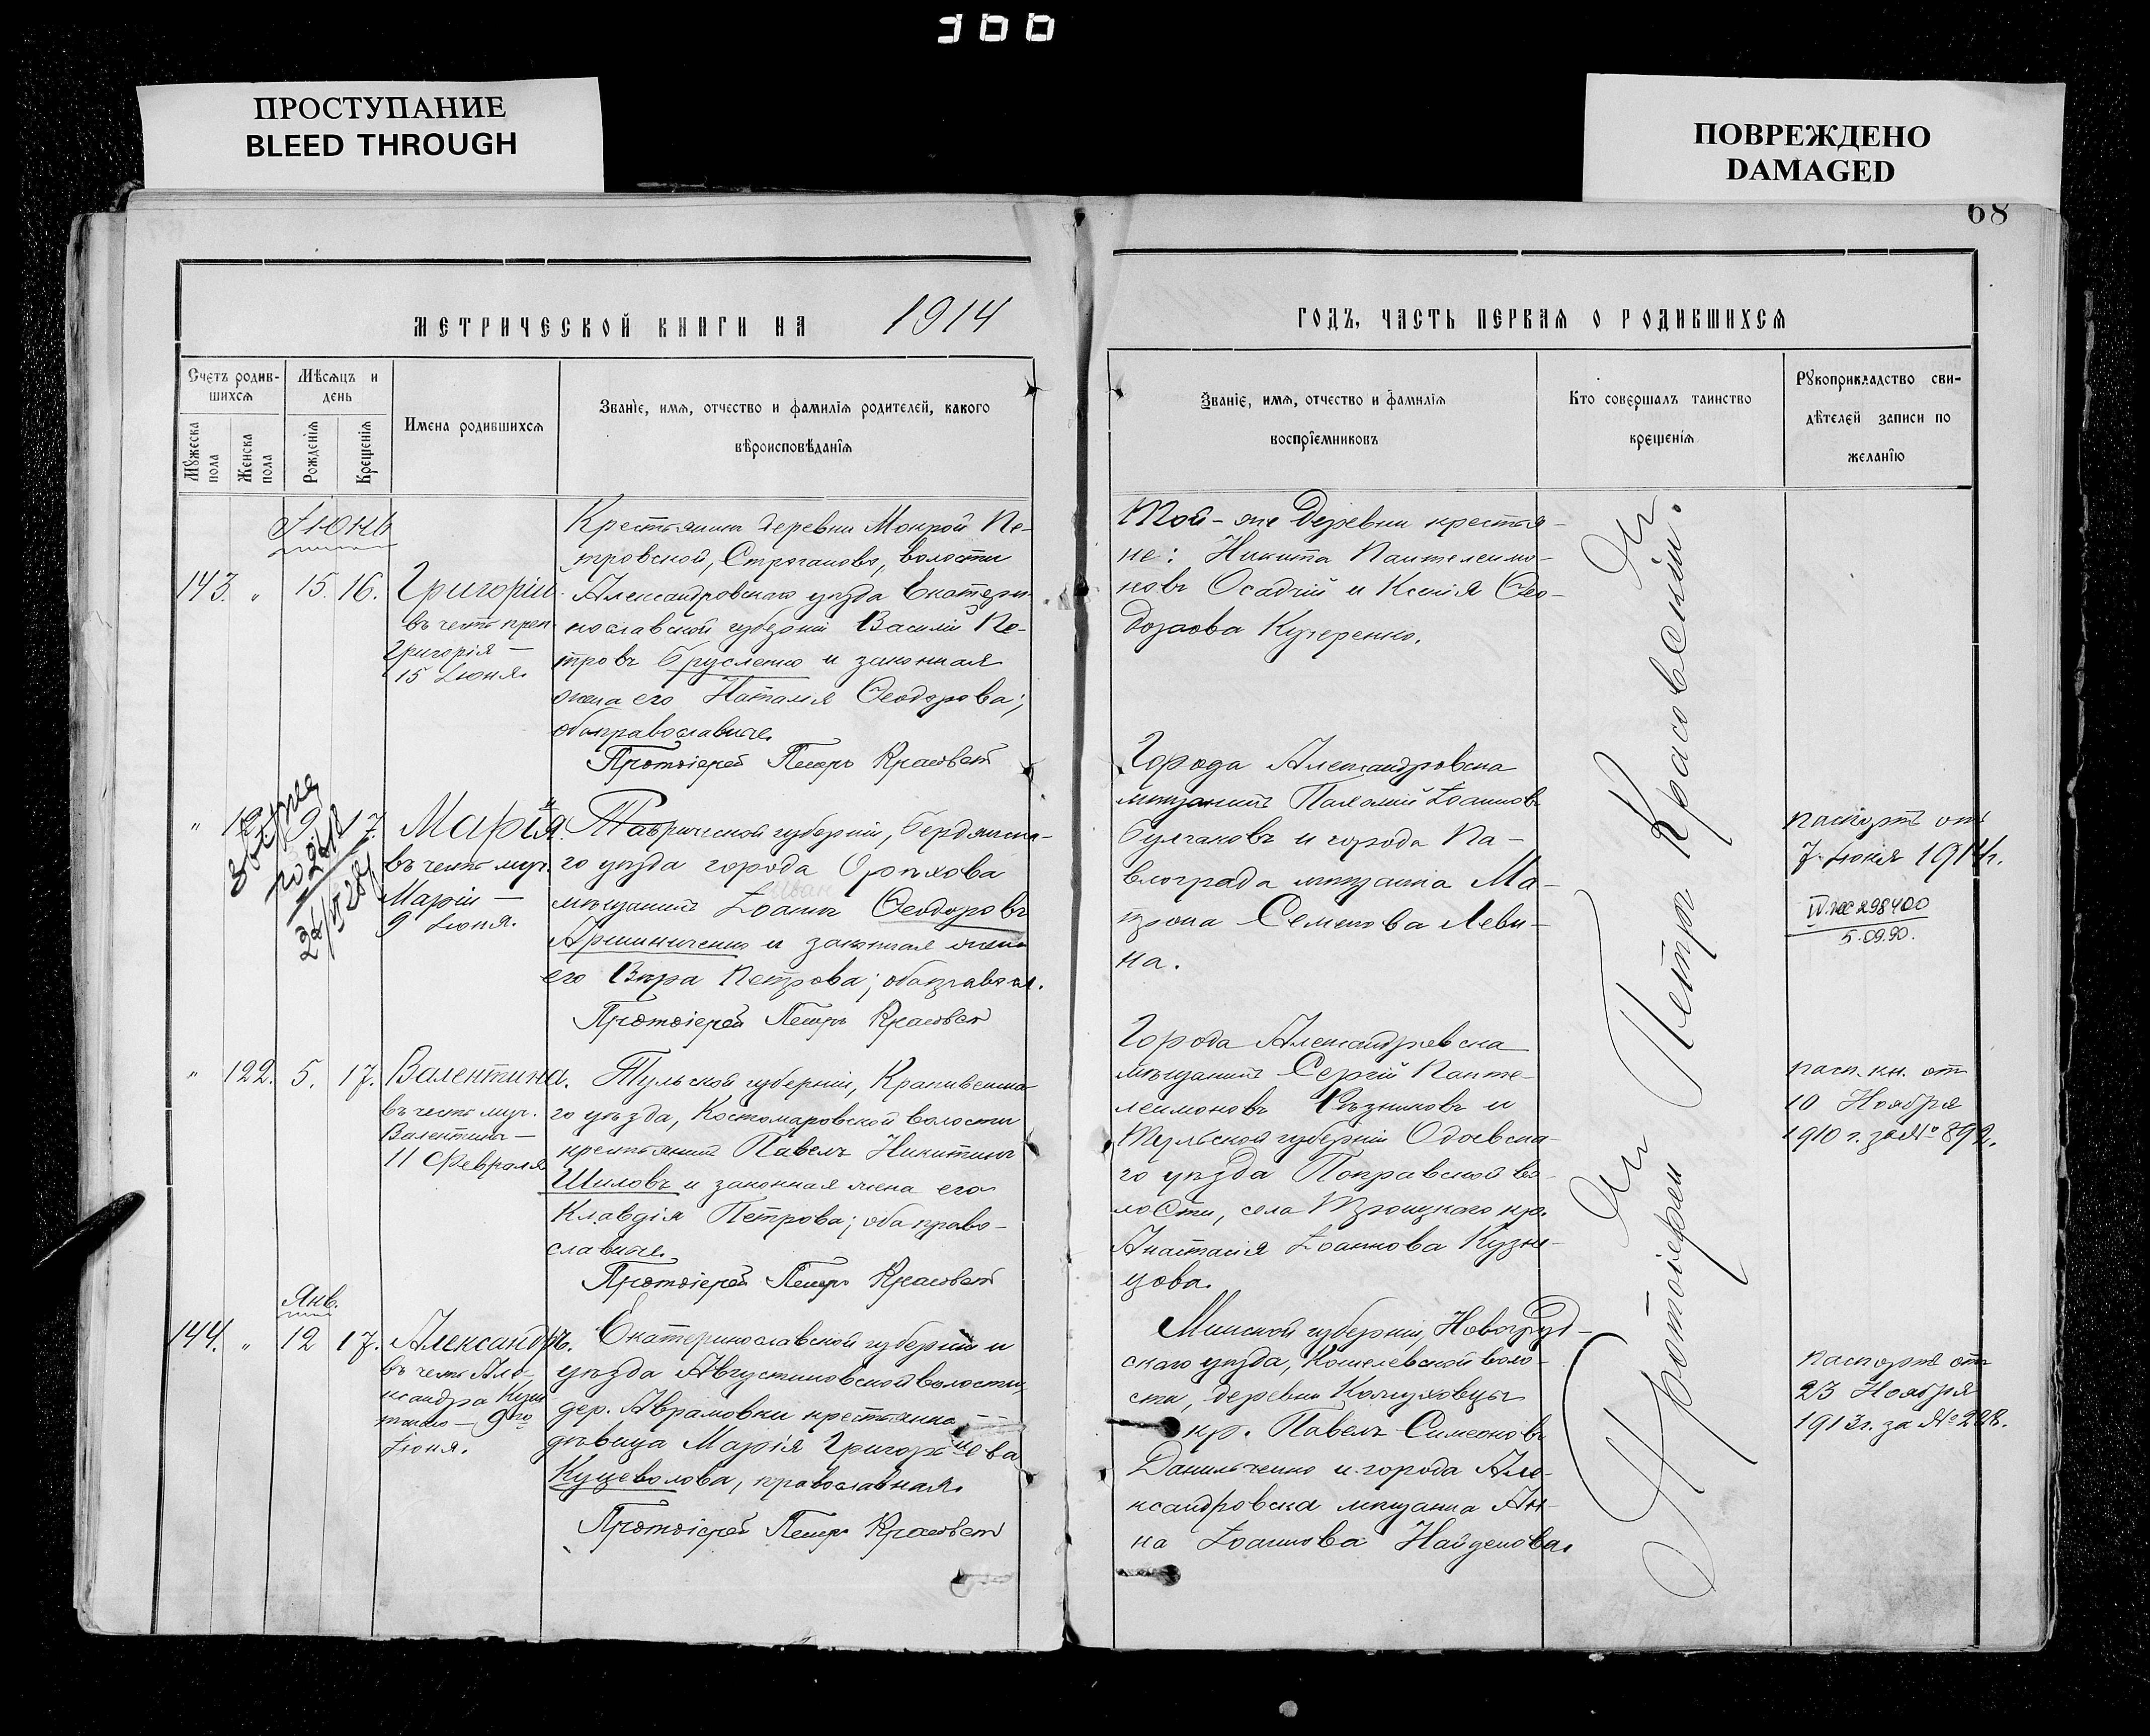 300
ПРОСТУПАНИЕ
BLEED THROUGH
ПОВРЕЖДЕНО
DAMAGED
68
МЕТРИЧЕСКОЙ КНИГИ НА 1914
ГОДЪ, ЧАСТЬ ПЕРВАЯ О РОДИВШИХСЯ
Счетъ родив-
шихся
Мѣсяцъ и
день
Мужеска
пола
Женска
пола
Рожденія
Крещенія
Имена родившихся
Званіе, имя, отчество и фамилія родителей, какого
вѣроисповѣданія
Званіе, имя, отчество и фамилія
воспріемниковъ
Кто совершалъ таинство
крещенія
Рукоприкладство сви-
дѣтелей записи по
желанію
Іюнь
143. " 15. 16. Григорій
въ честь преп.
Григорія —
15 Іюня.
Крестьянинъ деревни Мокрой Пе-
тровской, Строгановс., волости
Александровскаго уѣзда Екатери-
нославской губерніи Василій Пе-
тровъ Брусленко и законная
жена его Наталія Ѳеодорова;
оба православные.
Протоіерей Петръ Красовск
Той-же деревни крестья-
не: Никита Пантелеимо-
новъ Осадчій и Ксенія Ѳео-
дорова Кучеренко.
" 9 17. Марія.
въ честь муч.
Маріи —
9 Іюня.
Таврической губерніи, Бердянска-
го уѣзда города Орѣхова
мѣщанинъ Іоаннъ Ѳеодоровъ
Аршинниченко и законная жена
его Вѣра Петрова; оба правосл.
Протоіерей Петръ Красовск
Города Александровска
мѣщанинъ Пахомій Іоанновъ
Булгаковъ и города Па-
влограда мѣщанка Ма-
трона Семенова Леви-
на.
паспортъ отъ
7 Іюня 1914 г.
298400
5.09.90.
" 122. 5. 17. Валентина.
въ честь муч.
Валентины —
11 Февраля
Тульской губерніи, Крапивенска-
го уѣзда, Костомаровской волости
крестьянинъ Павелъ Никитинъ
Шиловъ и законная жена его
Клавдія Петрова; оба право-
славные.
Протоіерей Петръ Красовск
Города Александровска
мѣщанинъ Сергій Панте-
леимоновъ Рѣзниковъ и
Тульской губерніи Одоевска-
го уѣзда Покравской во-
лости, села Троицкаго кр.
Анастасія Іоаннова Кузне-
цова.
пасп. кн. отъ
10 Ноября
1910 г. за № 892.
Янв.
144. " 12 17. Александръ.
въ честь Але-
ксандра
9го
Іюня.
Екатеринославской губерніи и
уѣзда Августиновской волости,
дер. Аврамовки крестьянка —
дѣвица Марія Григорьева
Куцеволова, православная.
Протоіерей Петръ Красовск
Минской губерніи, Новогруд-
скаго уѣзда, Кошелевской воло-
сти, деревни
кр. Павелъ Симеоновъ
Данильченко и города Але-
ксандровска мѣщанка Ан-
на Іоаннова Найденова.
паспортъ отъ
23 Ноября
1913 г. за № 228.
Протоіерей Петръ Красовскій.